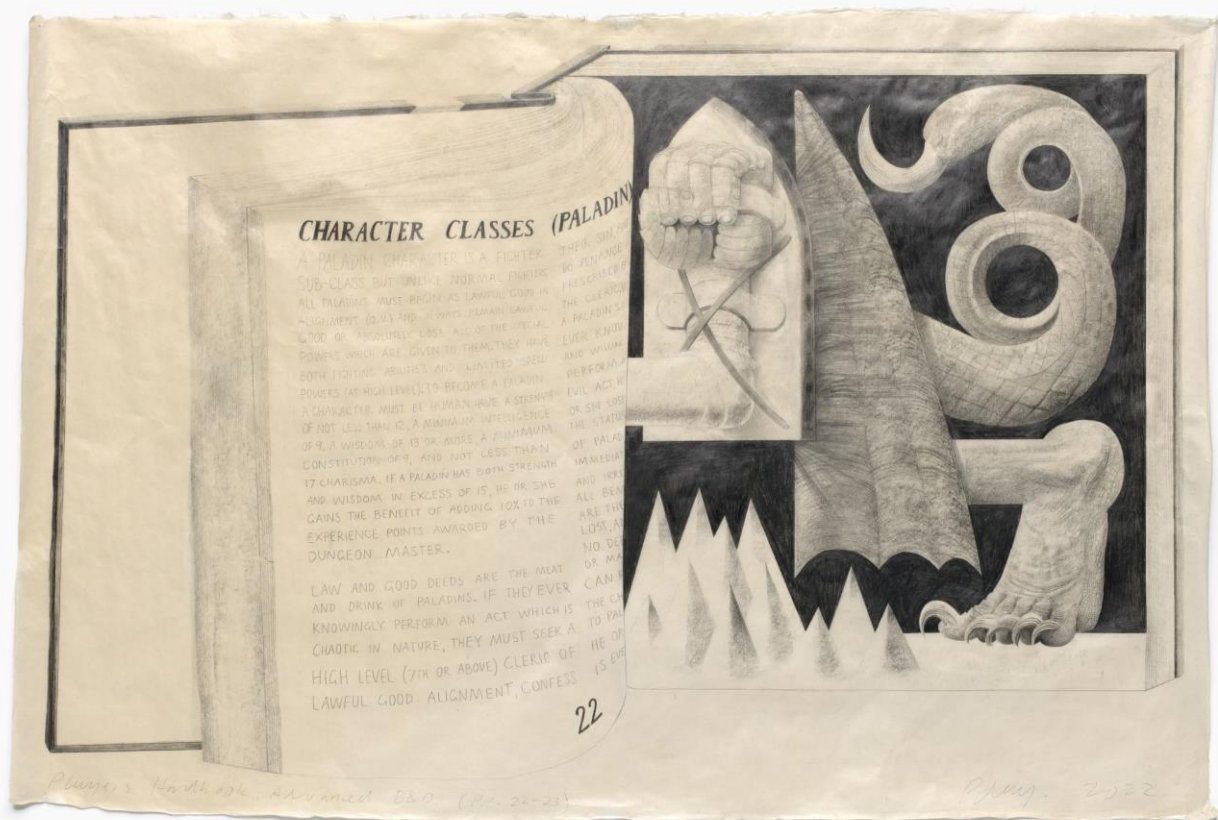 CHARACTER CLASSES (PALADIN)
A PALADIN CHARACTER IS A FIGHTER
SUB-CLASS BUT UNLIKE NORMAL FIGHTERS
ALL PALADINS MUST BEGIN AS LAWFUL GOOD IN
ALIGNMENT (Q.V.) AND ALWAYS REMAIN LAWFUL
GOOD OR ABSOLUTELY LOSE ALL OF THE SPECIAL
POWERS WHICH ARE GIVEN TO THEM. THEY HAVE
BOTH FIGHTING ABILITIES AND LIMITED SPELL
POWERS (AT HIGH LEVEL). TO BECOME A PALADIN
A CHARACTER MUST BE HUMAN, HAVE A STRENGTH
OF NOT LESS THAN 12, A MINIMUM INTELLIGENCE
OF 9, A WISDOM OF 13 OR MORE, A MINIMUM
CONSTITUTION OF 9, AND NOT LESS THAN
17 CHARISMA. IF A PALADIN HAS BOTH STRENGTH
AND WISDOM IN EXCESS OF 15, HE OR SHE
GAINS THE BENEFIT OF ADDING 10% TO THE
EXPERIENCE POINTS AWARDED BY THE
DUNGEON MASTER.
LAW AND GOOD DEEDS ARE THE MEAT
AND DRINK OF PALADINS. IF THEY EVER
KNOWINGLY PERFORM AN ACT WHICH IS
CHAOTIC IN NATURE, THEY MUST SEEK A
HIGH LEVEL (7TH OR ABOVE) CLERIC OF
LAWFUL GOOD ALIGNMENT, CONFESS
THEIR SIN,
DO PENANCE
PRESCRIBED
THE CLERIC.
A PALADIN
EVER
AND
PERFORM
EVIL ACT,
OR SHE
THE STATUS
OF PALAD
IMMEDIAT
AND IRR
ALL BEN
ARE THE
LOST, A
NO DE
OR MA
CAN
THE
TO PAL
HE OR
IS EVE
22
Players Handbook: Advanced D&D (Pp. 22-23)
2022